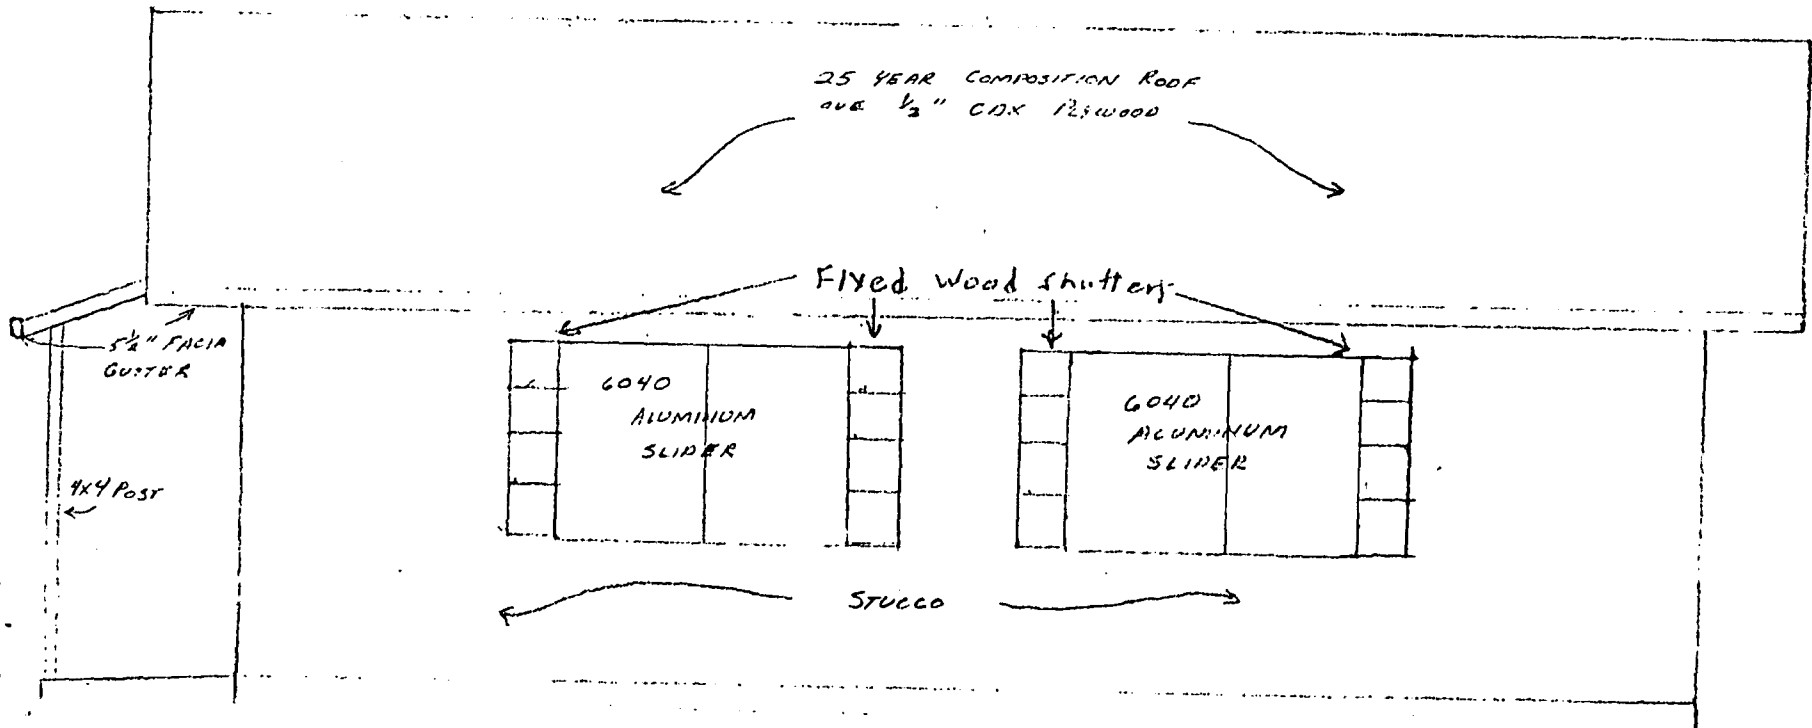 25 YEAR COMPOSITION ROOF
OVE 1/2" CDX PLYWOOD
Fixed Wood Shutters
5 1/2" FACIA
GUTTER
6040
ALUMINUM
SLIDER
6040
ALUMINUM
SLIDER
4x4 POST
STUCCO